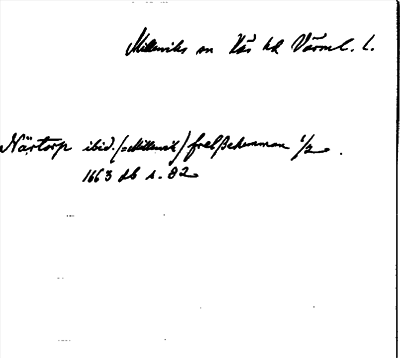 Millesviks sn Näs hd Värml. l.
Närtorp ibid. (=Millesvik) frelßehemman 1/2.
1663 db s. 82